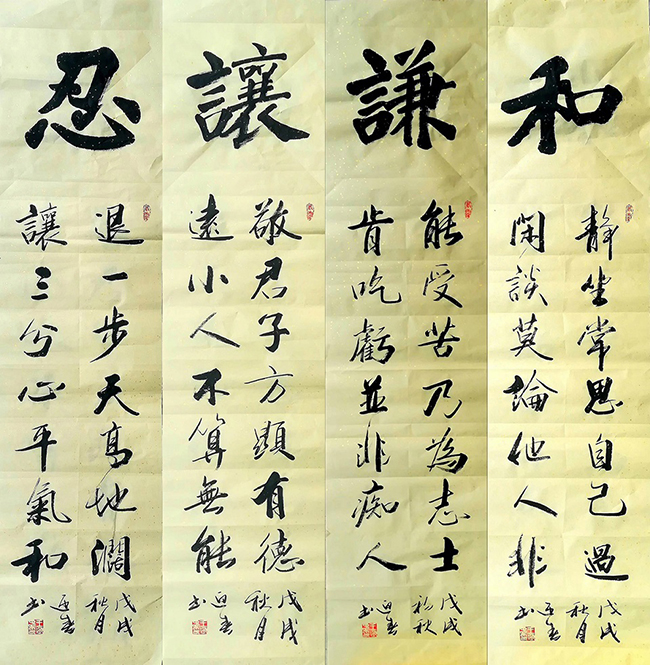 和
靜坐常思自己過
閑談莫論他人非
戊戌
秋月
书
謙
能受苦乃為志士
肯吃虧並非痴人
戊戌
初秋
书
讓
敬君子方顯有德
遠小人不算無能
戊戌
秋月
书
忍
退一步天高地濶
讓三分心平氣和
戊戌
秋月
书